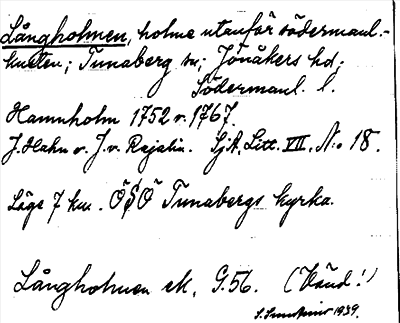 Långholmen, holme utanför södermanl.-
kusten; Tunaberg sn; Jönåkers hd;
Södermanl. l.
Hamnholm 1752 o. 1767.
J. Hahn o. J. v. Rajalin. SjA, Litt. VII, N:o 18.
Läge 7 km. ÖSÖ Tunabergs kyrka.
Långholmen ek. G. 56. (Vänd!)
1939.